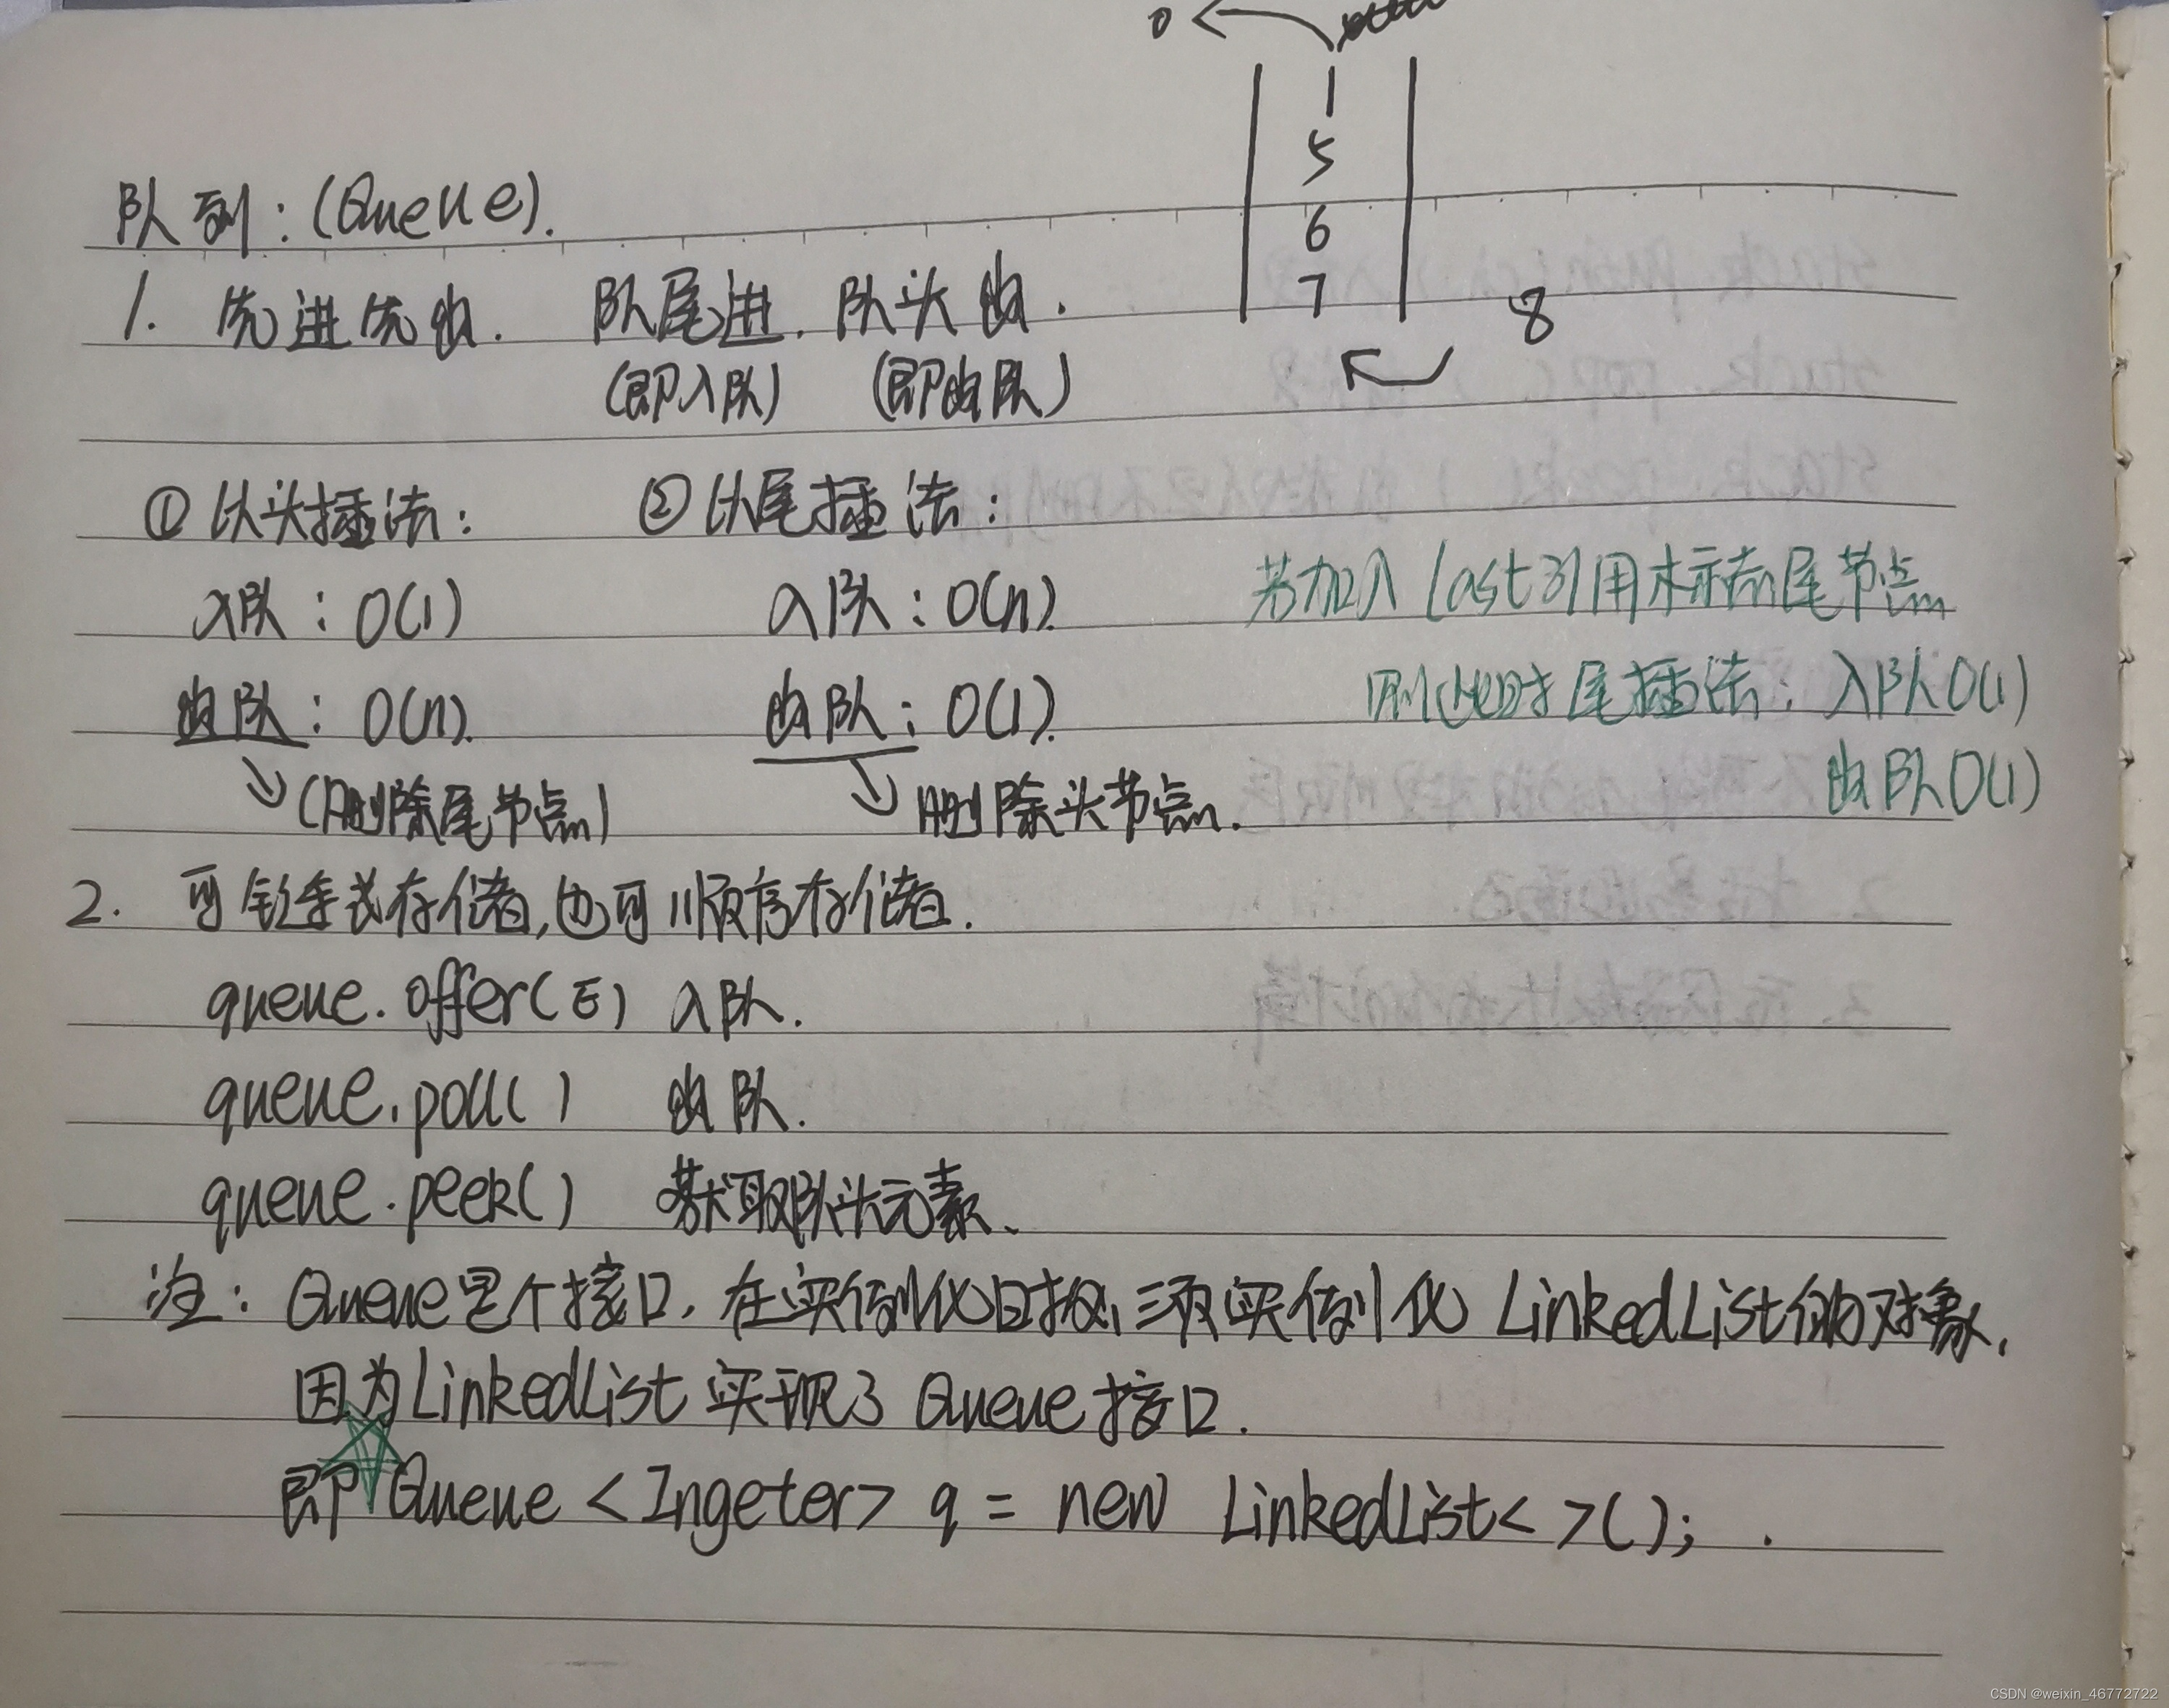 0
1
5
6
7
8
队列:(Queue).
1. 先进先出. 队尾进. 队头出.
(即入队) (即出队)
①以头插法: ②以尾插法:
入队:O(1) 入队:O(n). 若加入last引用标志尾节点
出队:O(n). 出队:O(1). 则此时尾插法:入队O(1)
出队O(1)
(删除尾节点) 删除头节点.
2. 可链式存储,也可顺序存储.
queue.offer(E) 入队.
queue.poll() 出队.
queue.peek() 获取队头元素、
注:Queue是个接口,在实例化时必须实例化 LinkedList的对象,
因为LinkedList 实现了 Queue 接口.
即 Queue <Ingeter> q = new LinkedList< >(); .
CSDN @weixin_46772722